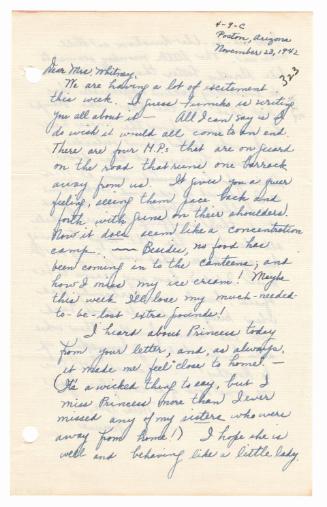 4-9-C
Poston, Arizona
November 23, 1942
323
Dear Mrs Whitney,
We are having a lot of excitement
this week. I guess Fumiko is writing
you all about it — All I can say is I
do wish it would all come to an end.
There are four M.P.s that are on guard
on the road that runs one barrack
away from us. It gives you a queer
feeling, seeing them pace back and
forth with guns on their shoulders.
Now it does seem like a concentration
camp. — Besides, no food has
been coming in to the canteens; and
how I miss my ice cream! Maybe
this week I'll lose my much-needed-
to-be-lost extra pounds!
I heard about Princess today
from your letter, and, as always,
it made me feel close to home. —
(It's a wicked thing to say, but I
miss Princess more than I ever
missed any of my sisters who were
away from home!) I hope she is
well and behaving like a little lady.